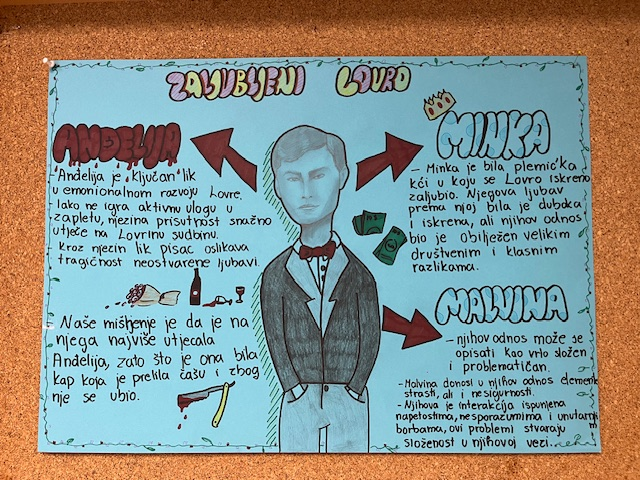 ZALJUBLJENI LOVRO
ANĐELIJA
Anđelija je ključan lik
u emonionalnom razvoju Lovre.
Iako ne igra aktivnu ulogu u
zapletu, njezina prisutnost snažno
utječe na Lovrinu sudbinu.
Kroz njezin lik pisac oslikava
tragičnost neostvarene ljubavi.
Naše mišljenje je da je na
njega najviše utjecala
Anđelija, zato što je ona bila
kap koja je prelila čašu i zbog
nje se ubio.
MINKA
- Minka je bila plemićka
kći u koju se Lovro iskreno
zaljubio. Njegova ljubav
prema njoj bila je duboka
i iskrena, ali njihov odnos
bio je obilježen velikim
društvenim i klasnim
razlikama.
MALVINA
- njihov odnos može se
opisati kao vrlo složen
i problematičan.
- Malvina donosi u njihov odnos element
strasti, ali i nesigurnosti.
- Njihova je interakcija ispunjena
napetostima, nesporazumima i unutarnjim
borbama, ovi problemi stvaraju
složenost u njihovoj vezi.